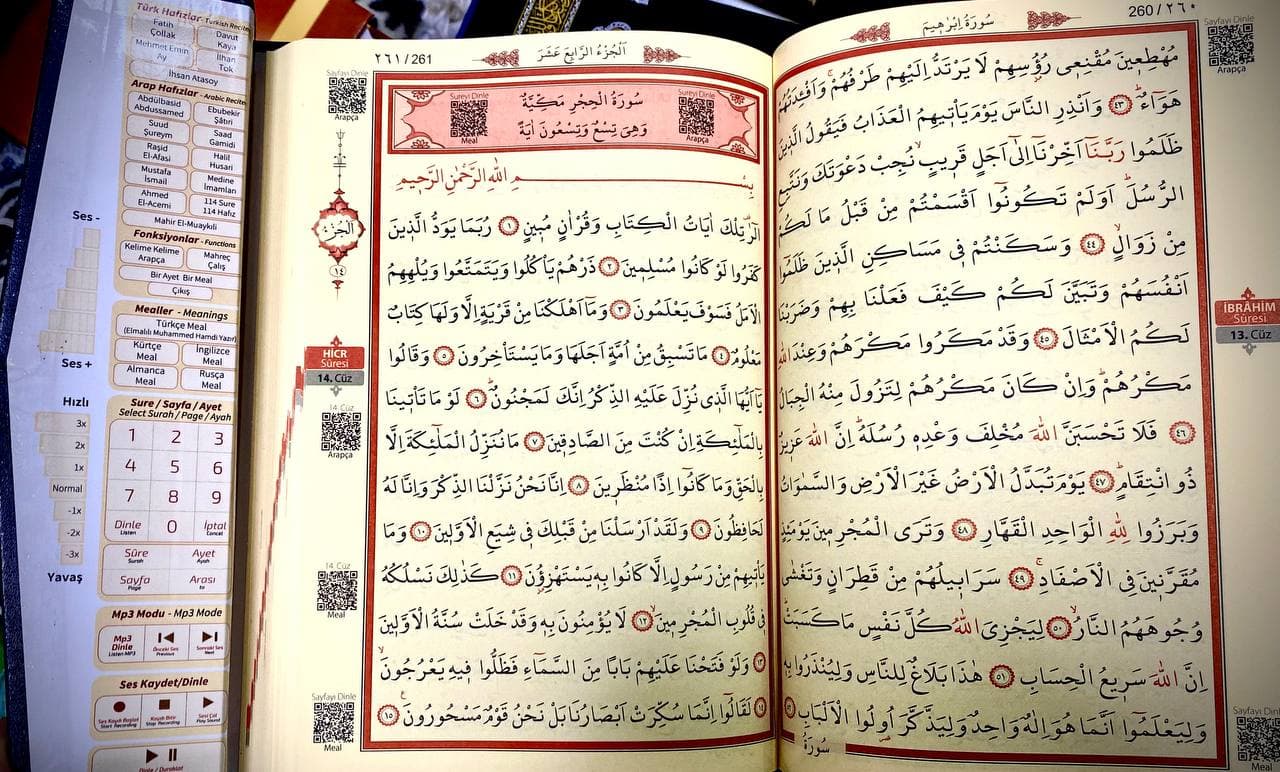 Türk Hafızlar - Turkish Recite
Fatih Çollak
Davut Kaya
Mehmet Emin Ay
İlhan Tok
İhsan Atasoy
Arap Hafızlar - Arabic Recite
Abdülbasid Abdussamed
Ebubekir Şâtıri
Suud Şureym
Saad Gamidi
Raşid El-Afasi
Halil Husari
Mustafa İsmail
Medine İmamları
Ahmed El-Acemi
114 Sure 114 Hafız
Mahir El-Muaykili
Fonksiyonlar - Functions
Kelime Kelime Arapça
Mahreç Çalış
Bir Ayet Bir Meal
Çıkış
Mealler - Meanings
Türkçe Meal
(Elmalılı Muhammed Hamdi Yazır)
Kürtçe Meal
İngilizce Meal
Almanca Meal
Rusça Meal
Sure / Sayfa / Ayet
Select Surah / Page / Ayah
1 2 3
4 5 6
7 8 9
Dinle Listen 0 İptal Cancel
Sûre Surah
Ayet Ayah
Sayfa Page
Arası to
Mp3 Modu - Mp3 Mode
Mp3 Dinle Listen MP3
Önceki Ses Previous
Sonraki Ses Next
Ses Kaydet/Dinle
Ses Kaydı Başlat Start Recording
Kaydı Bitir Stop Recording
Sesi Çal Play Sound
Ses -
Ses +
Hızlı
3x
2x
1x
Normal
-1x
-2x
-3x
Yavaş
260 / ٢٦٠
سُورَةُ اِبْرٰه۪يمَ
Sayfayı Dinle
Arapça
مُهْطِع۪ينَ مُقْنِع۪ى رُؤُسِهِمْ لَا يَرْتَدُّ اِلَيْهِمْ طَرْفُهُمْ وَاَفْـِٔدَتُهُمْ
هَوَٓاءٌ ٤٣ وَاَنْذِرِ النَّاسَ يَوْمَ يَأْت۪يهِمُ الْعَذَابُ فَيَقُولُ الَّذ۪ينَ
ظَلَمُوا رَبَّنَٓا اَخِّرْنَٓا اِلٰٓى اَجَلٍ قَر۪يبٍ نُجِبْ دَعْوَتَكَ وَنَتَّبِعِ
الرُّسُلَ اَوَلَمْ تَكُونُٓوا اَقْسَمْتُمْ مِنْ قَبْلُ مَا لَكُمْ
مِنْ زَوَالٍ ٤٤ وَسَكَنْتُمْ ف۪ى مَسَاكِنِ الَّذ۪ينَ ظَلَمُٓوا
اَنْفُسَهُمْ وَتَبَيَّنَ لَكُمْ كَيْفَ فَعَلْنَا بِهِمْ وَضَرَبْنَا
لَكُمُ الْاَمْثَالَ ٤٥ وَقَدْ مَكَرُوا مَكْرَهُمْ وَعِنْدَ اللّٰهِ
مَكْرُهُمْ وَاِنْ كَانَ مَكْرُهُمْ لِتَزُولَ مِنْهُ الْجِبَالُ
٤٦ فَلَا تَحْسَبَنَّ اللّٰهَ مُخْلِفَ وَعْدِه۪ رُسُلَهُ اِنَّ اللّٰهَ عَز۪يزٌ
ذُو انْتِقَامٍ ٤٧ يَوْمَ تُبَدَّلُ الْاَرْضُ غَيْرَ الْاَرْضِ وَالسَّمٰوَاتُ
وَبَرَزُوا لِلّٰهِ الْوَاحِدِ الْقَهَّارِ ٤٨ وَتَرَى الْمُجْرِم۪ينَ يَوْمَئِذٍ
مُقَرَّن۪ينَ فِى الْاَصْفَادِ ٤٩ سَرَاب۪يلُهُمْ مِنْ قَطِرَانٍ وَتَغْشٰى
وُجُوهَهُمُ النَّارُ ٥٠ لِيَجْزِىَ اللّٰهُ كُلَّ نَفْسٍ مَا كَسَبَتْ
اِنَّ اللّٰهَ سَر۪يعُ الْحِسَابِ ٥١ هٰذَا بَلَاغٌ لِلنَّاسِ وَلِيُنْذَرُوا بِه۪
وَلِيَعْلَمُٓوا اَنَّمَا هُوَ اِلٰهٌ وَاحِدٌ وَلِيَذَّكَّرَ اُو۬لُوا الْاَلْبَابِ ٥٢
سُورَةُ
İBRÂHİM
Sûresi
13. Cüz
Sayfayı Dinle
Meal
٢٦١ / 261
اَلْجُزْءُ الرَّابِعُ عَشَرَ
Sayfayı Dinle
Arapça
اَلْجُزْءُ
١٤
HİCR
Sûresi
14. Cüz
14. Cüz
Arapça
14. Cüz
Meal
Sayfayı Dinle
Meal
Sureyi Dinle
Arapça
Sureyi Dinle
Meal
سُورَةُ الْحِجْرِ مَكِّيَّةٌ
وَهِىَ تِسْعٌ وَتِسْعُونَ اٰيَةً
بِسْمِ اللّٰهِ الرَّحْمٰنِ الرَّح۪يمِ
الٓرٰ تِلْكَ اٰيَاتُ الْكِتَابِ وَقُرْاٰنٍ مُب۪ينٍ ١ رُبَمَا يَوَدُّ الَّذ۪ينَ
كَفَرُوا لَوْ كَانُوا مُسْلِم۪ينَ ٢ ذَرْهُمْ يَأْكُلُوا وَيَتَمَتَّعُوا وَيُلْهِهِمُ
الْاَمَلُ فَسَوْفَ يَعْلَمُونَ ٣ وَمَٓا اَهْلَكْنَا مِنْ قَرْيَةٍ اِلَّا وَلَهَا كِتَابٌ
مَعْلُومٌ ٤ مَا تَسْبِقُ مِنْ اُمَّةٍ اَجَلَهَا وَمَا يَسْتَأْخِرُونَ ٥ وَقَالُوا
يَٓا اَيُّهَا الَّذ۪ى نُزِّلَ عَلَيْهِ الذِّكْرُ اِنَّكَ لَمَجْنُونٌ ٦ لَوْ مَا تَأْت۪ينَا
بِالْمَلٰٓئِكَةِ اِنْ كُنْتَ مِنَ الصَّادِق۪ينَ ٧ مَا نُنَزِّلُ الْمَلٰٓئِكَةَ اِلَّا
بِالْحَقِّ وَمَا كَانُٓوا اِذًا مُنْظَر۪ينَ ٨ اِنَّا نَحْنُ نَزَّلْنَا الذِّكْرَ وَاِنَّا لَهُ
لَحَافِظُونَ ٩ وَلَقَدْ اَرْسَلْنَا مِنْ قَبْلِكَ ف۪ى شِيَعِ الْاَوَّل۪ينَ ١٠ وَمَا
يَأْت۪يهِمْ مِنْ رَسُولٍ اِلَّا كَانُوا بِه۪ يَسْتَهْزِؤُ۫نَ ١١ كَذٰلِكَ نَسْلُكُهُ
ف۪ى قُلُوبِ الْمُجْرِم۪ينَ ١٢ لَا يُؤْمِنُونَ بِه۪ وَقَدْ خَلَتْ سُنَّةُ الْاَوَّل۪ينَ
١٣ وَلَوْ فَتَحْنَا عَلَيْهِمْ بَابًا مِنَ السَّمَٓاءِ فَظَلُّوا ف۪يهِ يَعْرُجُونَ
١٤ لَقَالُٓوا اِنَّمَا سُكِّرَتْ اَبْصَارُنَا بَلْ نَحْنُ قَوْمٌ مَسْحُورُونَ ١٥